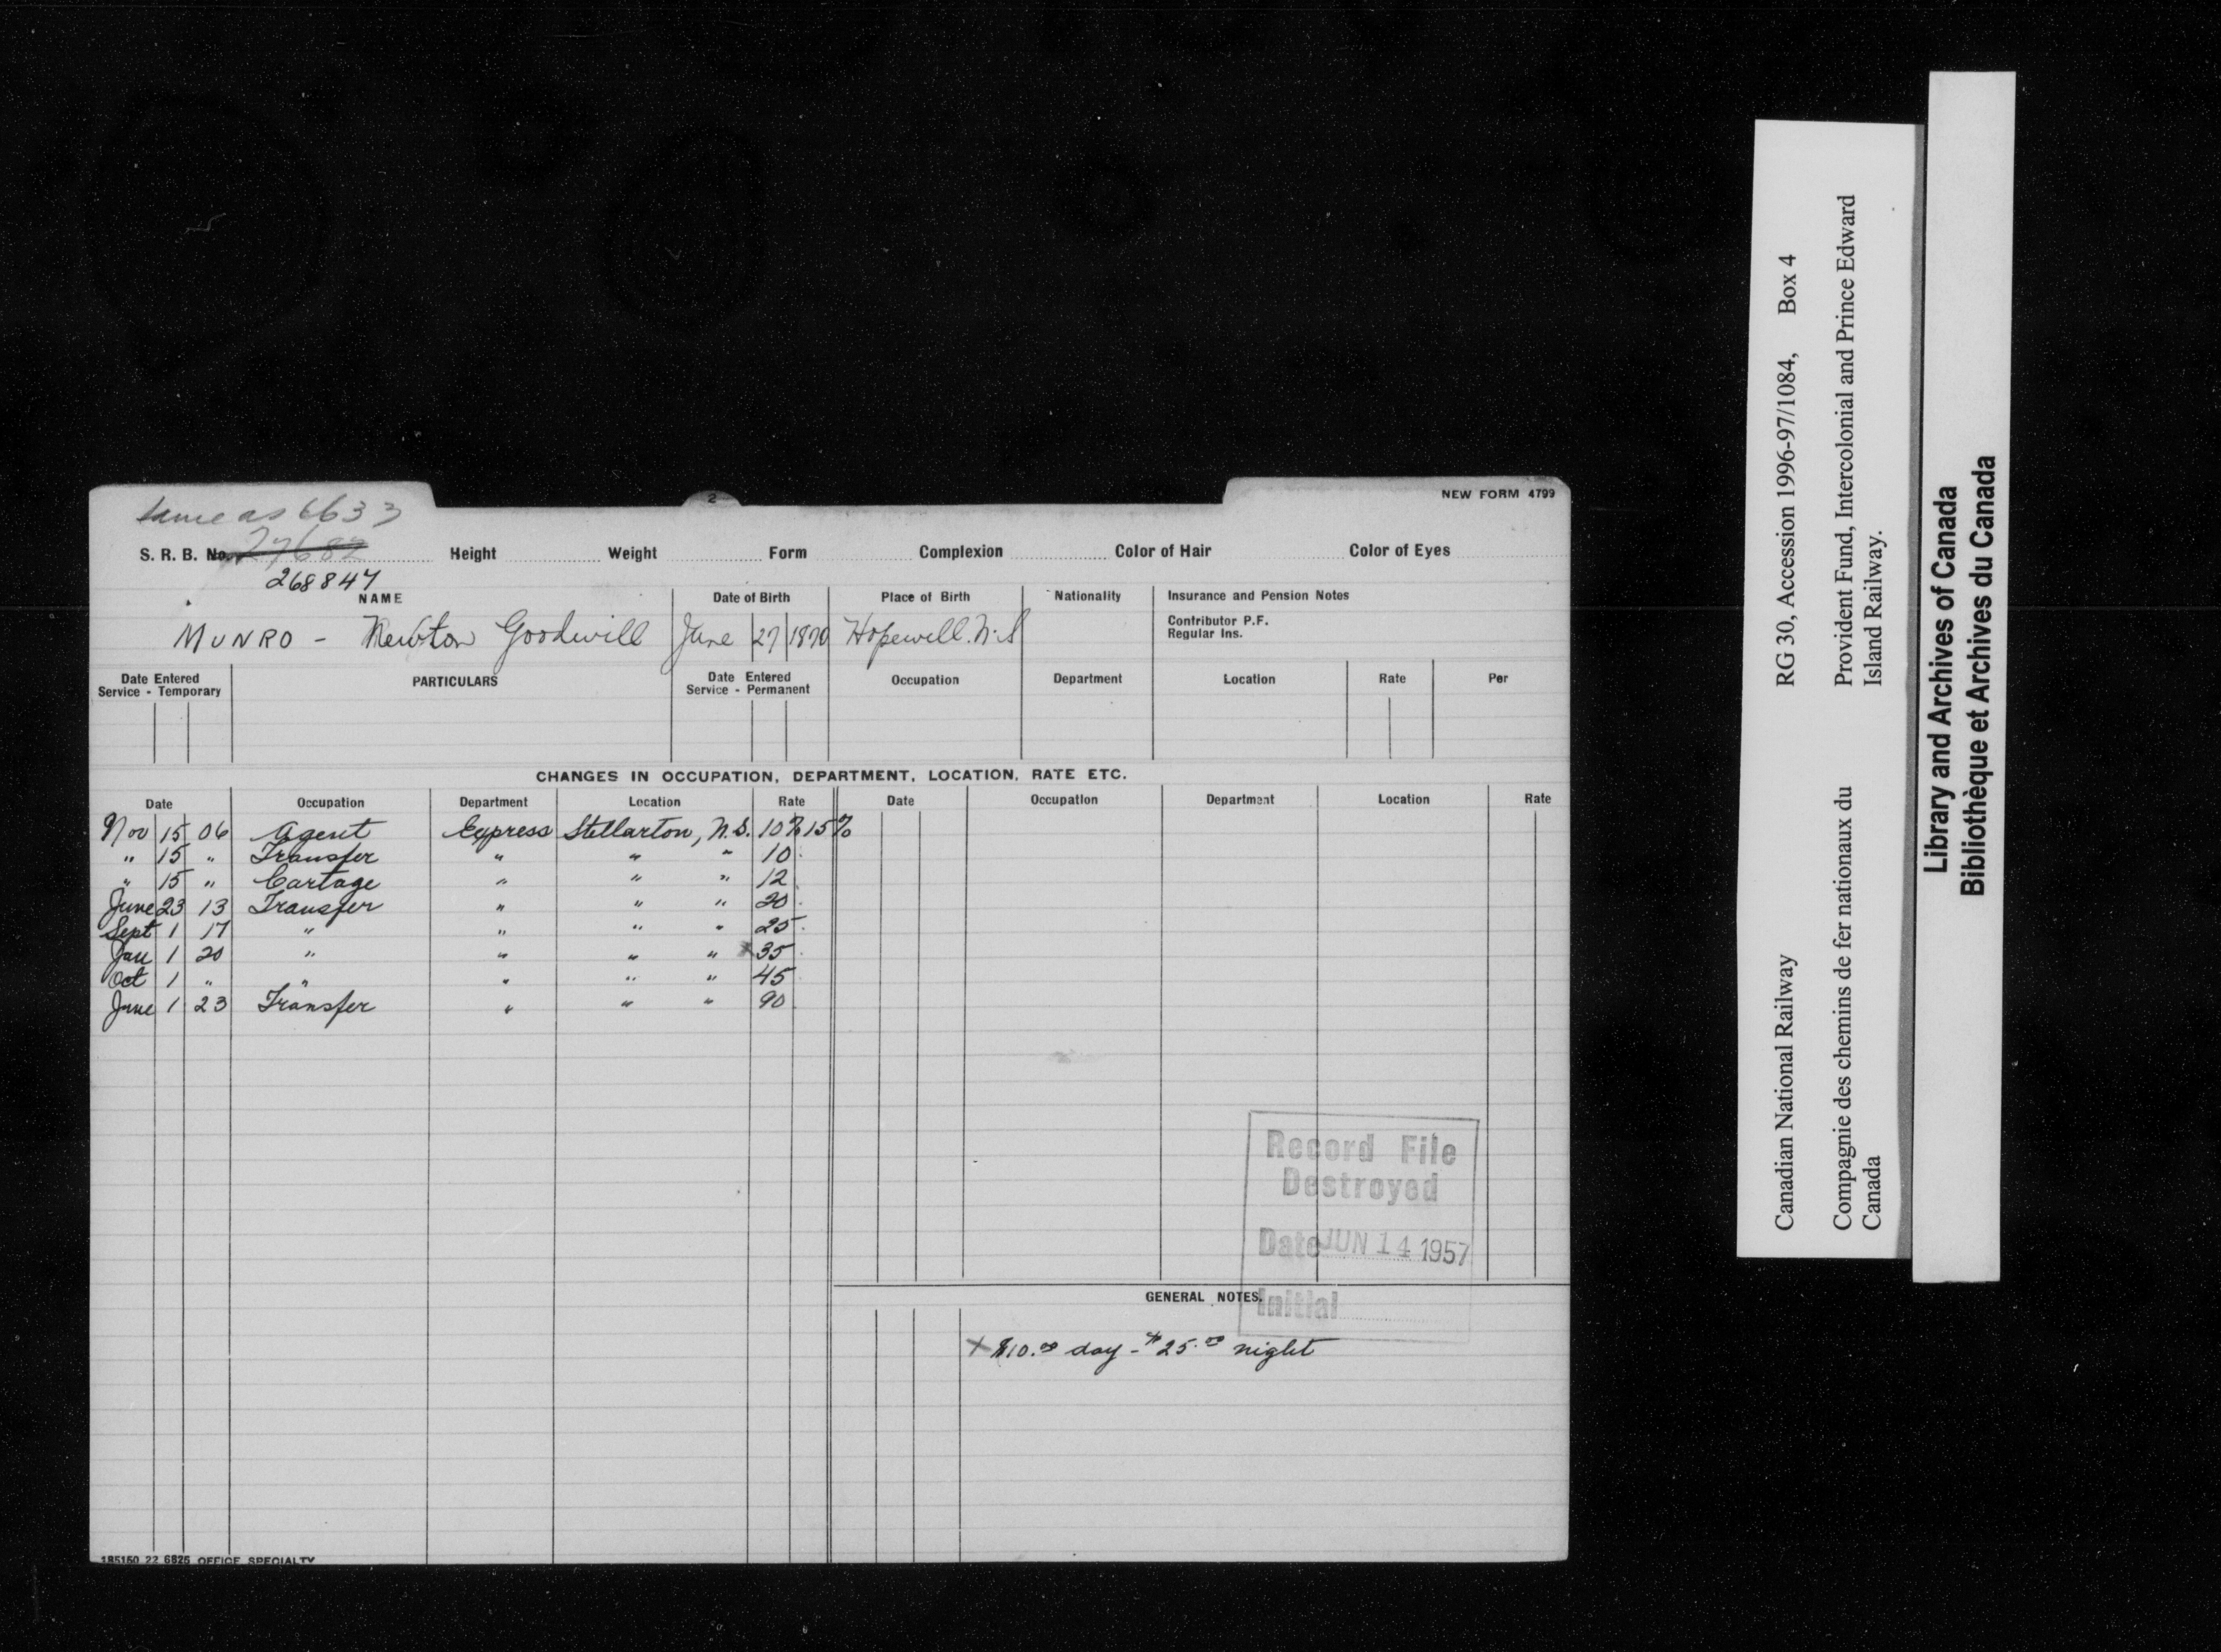 same as 6633
2
NEW FORM 4799
S. R. B. No. 27682 Height Weight Form Complexion Color of Hair Color of Eyes
268847
NAME Date of Birth Place of Birth Nationality Insurance and Pension Notes
Contributor P.F.
Regular Ins.
MUNRO - Newton Goodwill June 27 1870 Hopewell. N.S
Date Entered Service - Temporary PARTICULARS Date Entered Service - Permanent Occupation Department Location Rate Per
CHANGES IN OCCUPATION, DEPARTMENT, LOCATION, RATE ETC.
Date Occupation Department Location Rate Date Occupation Department Location Rate
Nov 15 06 Agent Express Stellarton, N.S. 10% 15%
" 15 " Transfer " " " 10
" 15 " Cartage " " " 12
June 23 13 Transfer " " " 20
Sept 1 17 " " " " 25
Jan 1 20 " " " " x 35
Oct 1 " " " " " 45
June 1 23 Transfer " " " 90
Record File
Destroyed
Date JUN 14 1957
Initial
GENERAL NOTES.
x $10.00 day - $25.00 night
185150 22 6825 OFFICE SPECIALTY
Canadian National Railway RG 30, Accession 1996-97/1084, Box 4
Compagnie des chemins de fer nationaux du Canada
Provident Fund, Intercolonial and Prince Edward Island Railway.
Library and Archives of Canada
Bibliothèque et Archives du Canada